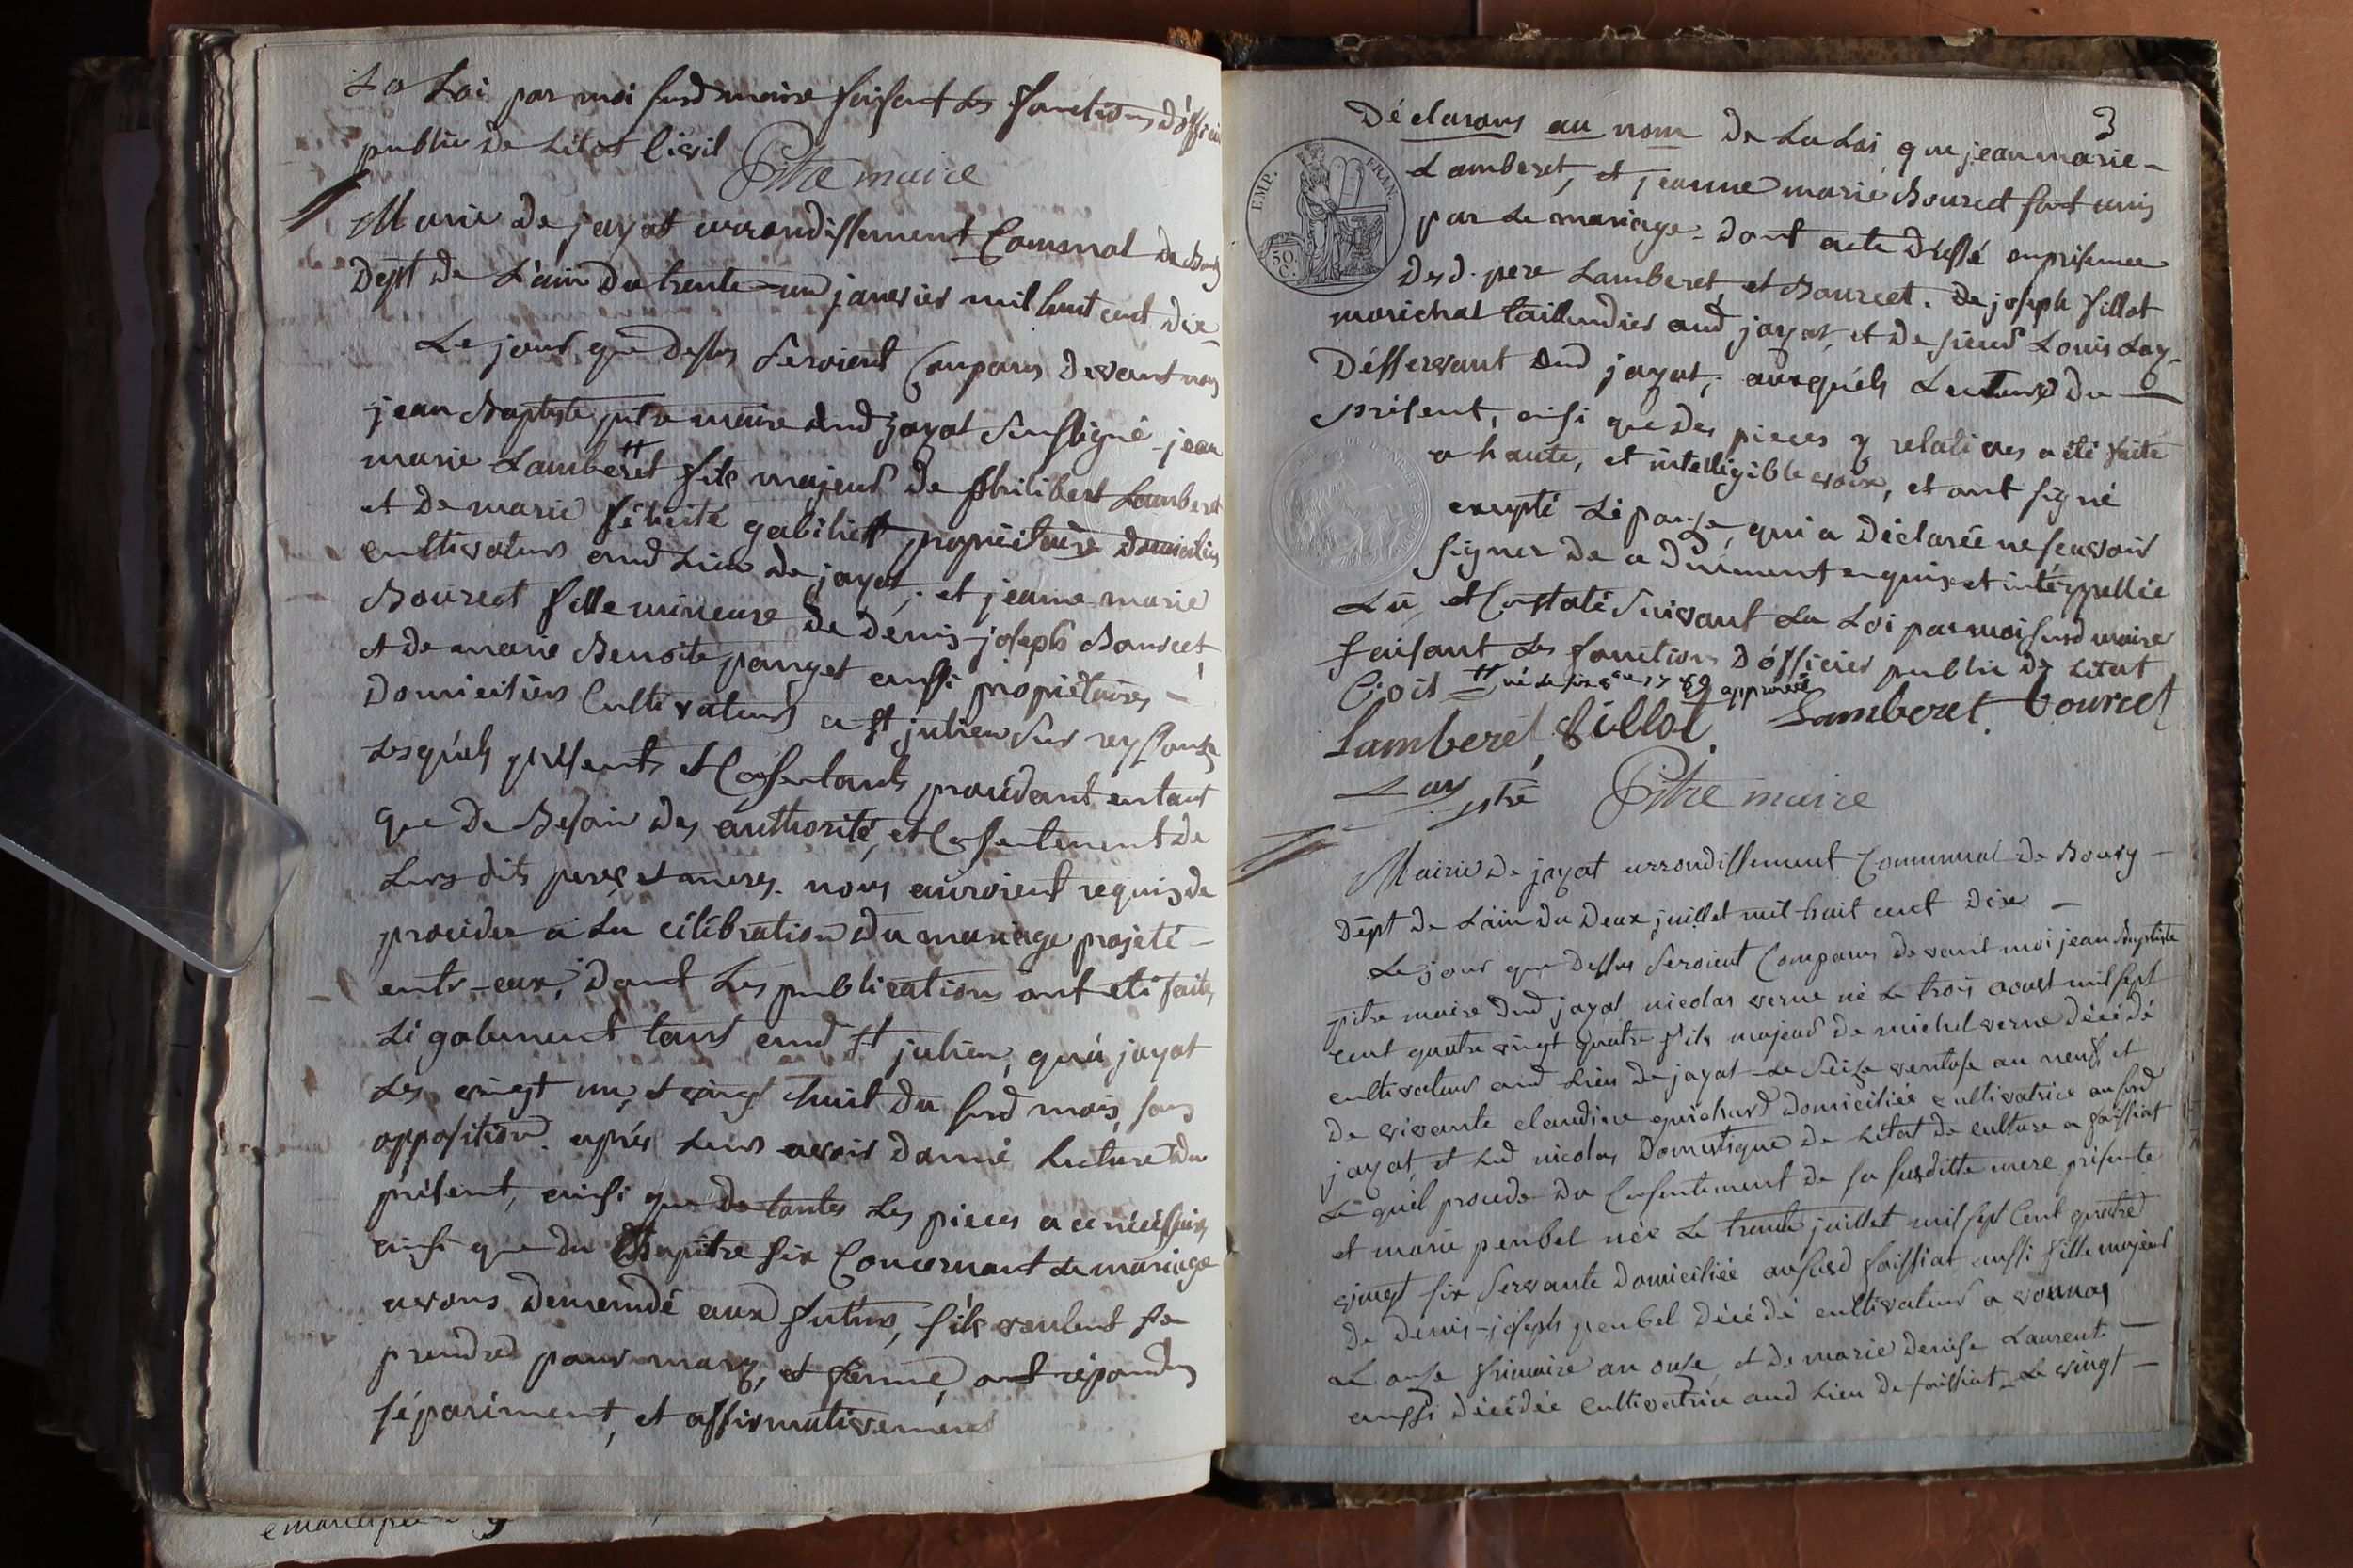 La Loi par moi susd maire faisant les fonctions d'officier
public de Létat Civil
Pitre maire
Mairie de jayat arrondissement Communal de Bourg
Dept de L'ain du trente-un janvier mil huit cent dix
Le jour que dessus Seroient Comparus devant nous
jean Baptiste pitre maire dud jayat Soussigné jean
marie Lamberet # fils majeur de philibert Lamberet
et de marie félicité gabiliet propriétaires domiciliés
cultivateurs aud Lieu de jayat; et jeanne-marie
Bourcet fille mineure de denis-joseph Bourcet
et de marie Benoite panget aussi propriétaires -
Domiciliés Cultivateurs a st julien sur reyssouze
Lesquels présents et Consentants procédant en tant
que de Besoin des authorité, et Consentement de
Leurs dits peres et meres. nous auroient requis de
proceder a La célébration du mariage projeté -
entr-eux, dont Les publications ont eté faites
Légalement tant aud st julien, qu'a jayat
Les vingt un, et vingt huit du susd mois, sans
opposition. après Leur avoir donné Lecture du
présent, ainsi que de toutes Les pieces a ce nécéssaires
ainsi que du Chapitre six Concernant Le mariage
avons demendé aux futurs, s'ils veulent se
prendre pour mary, et femme, ont répondus
séparément, et affirmativement
3
Déclarons au nom de La Loi que jean marie -
Lamberet, et jeanne marie Bourcet sont unis
par Le mariage - dont acte dressé en présence
desd. pere Lamberet, et Bourcet. de joseph fillot
marichal taillendier aud jayat, et de sieur Louis Lay -
Désservant dud jayat, auxquels Lecture du -
présent, ainsi que des pieces y relatives a été faite
a haute, et intelligible voix, et ont signé
excepté L'épouse, qui a déclarée ne sçavoir
signer de ce duement enquise et interppellée
Lu, et Constaté suivant La Loi par moi susd maire
faisant Les fonctions d'officier public de Létat
Civil # né Le 1769 approuvé
Lamberet fillot Lamberet bourcet
Lay ptre Pitre maire
Mairie de jayat arrondissement Communal de Bourg -
Dept de L'ain du Deux juillet mil huit cent dix -
Le jour que Dessus Seroient Comparus devant moi jean Baptiste
pitre maire dud jayat nicolas verne né Le trois aoust mil sept
cent quatre vingt quatre fils majeur de michel verne décédé
cultivateur aud Lieu de jayat Le seize ventose an neuf et
de vivante claudine guichard domiciliée cultivatrice au susd
jayat, et Led nicolas Domestique de Létat de culture a foissiat
Lequel procede du Consentement de sa susditte mere présente
et marie penbel née Le trente juillet mil sept Cent quatre
vingt six servante domiciliée au susd foissiat aussi fille majeur
de denis-joseph penbel décédé cultivateur a vonnas
Le onze frimaire an onze, et de marie denise Laurent -
aussi décédée cultivatrice aud Lieu de foissiat Le vingt -
EMP. FRAN.
50 C.